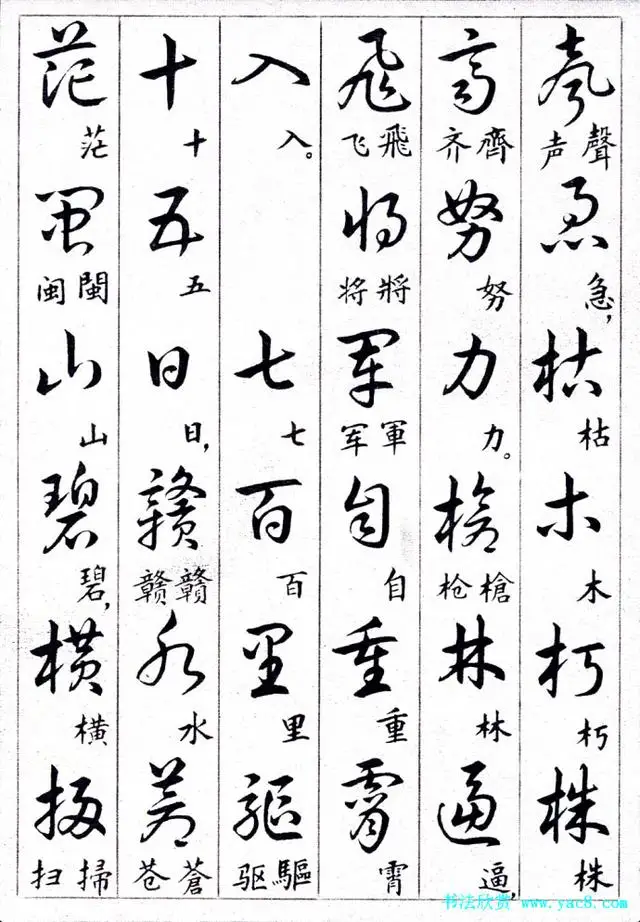 声急枯木朽株
声聲 急, 枯 木 朽 株
齐努力槍林逼
齐齊 努 力。 枪槍 林 逼,
飞将军自重霄
飞飛 将將 军軍 自 重 霄
入七百里驱
入。 七 百 里 驱驅
十五日赣水苍
十 五 日, 赣贛 水 苍蒼
茫闽山碧横扫
茫 闽閩 山 碧, 横 扫掃
书法欣赏 www.yac8.com